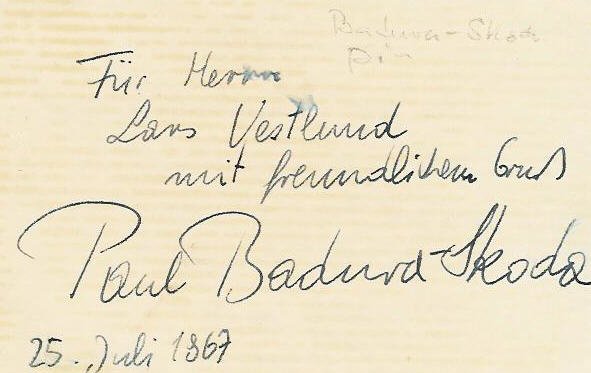 Badura-Skoda
Für Herrn
Lars Vestlund
mit freundlichem Gruß
Paul Badura-Skoda
25. Juli 1967